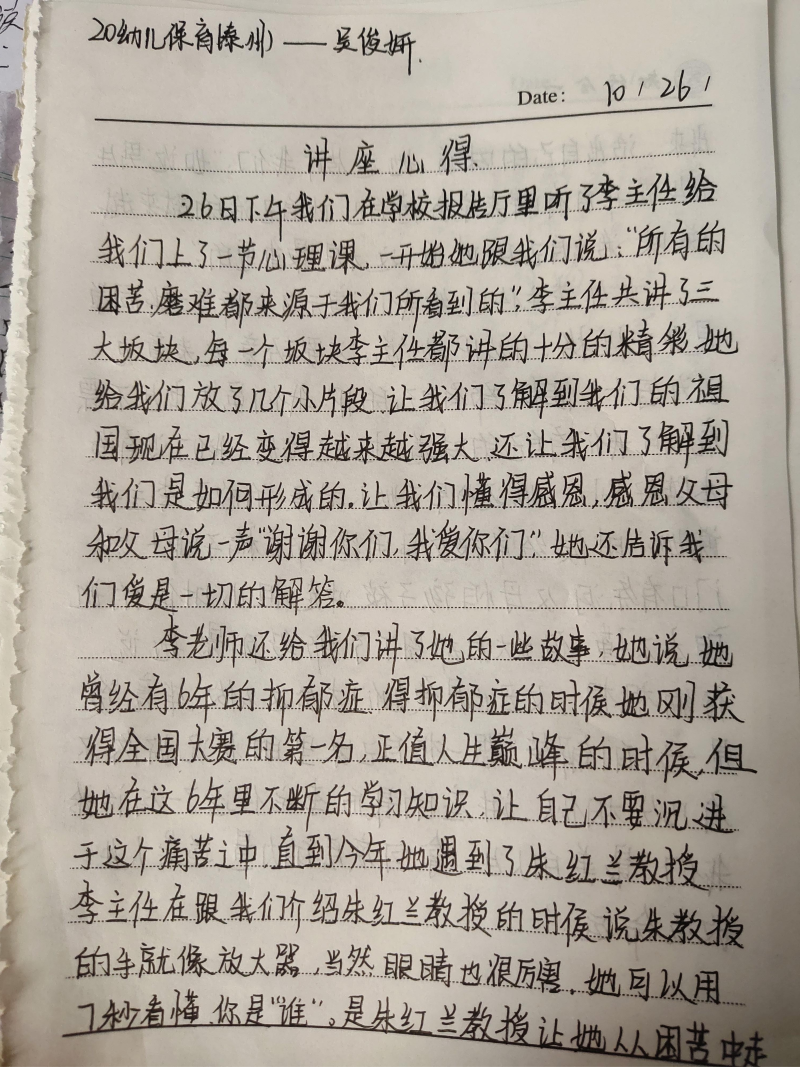 20幼儿保育(溱州)——吴俊妍.
Date: 10 / 26 /
讲座心得.
26日下午我们在学校报告厅里听了李主任给
我们上了一节心理课,一开始她跟我们说:“所有的
困苦.磨难都来源于我们所看到的”,李主任共讲了三
大坂块,每一个坂块李主任都讲的十分的精彩,她
给我们放了几个小片段 让我们了解到我们的祖
国现在已经变得越来越强大 还让我们了解到
我们是如何形成的.让我们懂得感恩,感恩父母
和父母说一声“谢谢你们,我爱你们”,她还告诉我
们爱是一切的解答。
李老师还给我们讲了她的一些故事,她说她
曾经有6年的抑郁症 得抑郁症的时候她刚获
得全国大赛的第一名,正值人生巅峰的时候,但
她在这6年里不断的学习知识,让自己不要沉进
于这个痛苦之中,直到今年她遇到了朱红兰教授
李主任在跟我们介绍朱红兰教授的时候 说朱教授
的手就像放大器,当然眼睛也很厉害,她可以用
7秒看懂,你是“谁”。是朱红兰教授让她从困苦中走